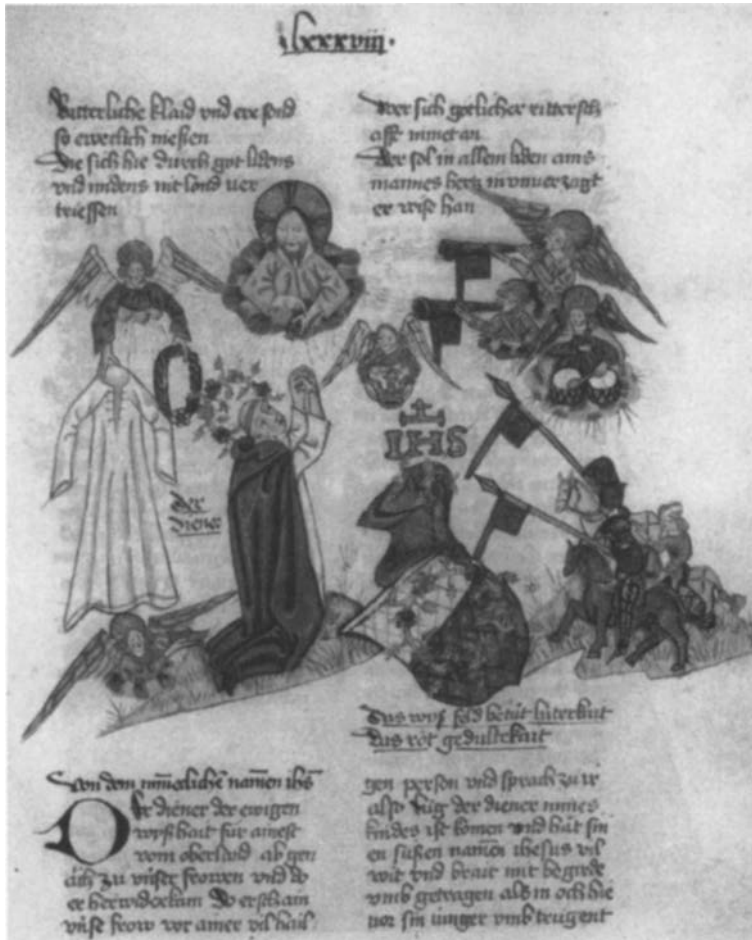 lxxxviii.
Ritterliche klaid vnd ere sond
so ewerlich niessen
Die sich hie durch got lidens
vnd midens nit lond ver
triessen
Wer sich rittersch
afft nimet an
Der sol in allem liden ains
mannes hertz in vnuerzagt
er wise han
der
diener
IHS
Das wyss feld betüt luterkait
das rot gedultekait
Von dem namen ihs
Der diener der ewigen
wyshait für ainest
vom oberland ab gen
ach zu vnser frowen vnd do
er herwiderkam do erschain
vnser frow vor ainer vil hail
gen person vnd sprach zu ir
also lůg der diener mines
kindes ist komen vnd hat sin
en süssen namen ihesus vil
wit vnd brait mit begirde
vmb getragen als in och hie
vor sin iunger vmb trugent